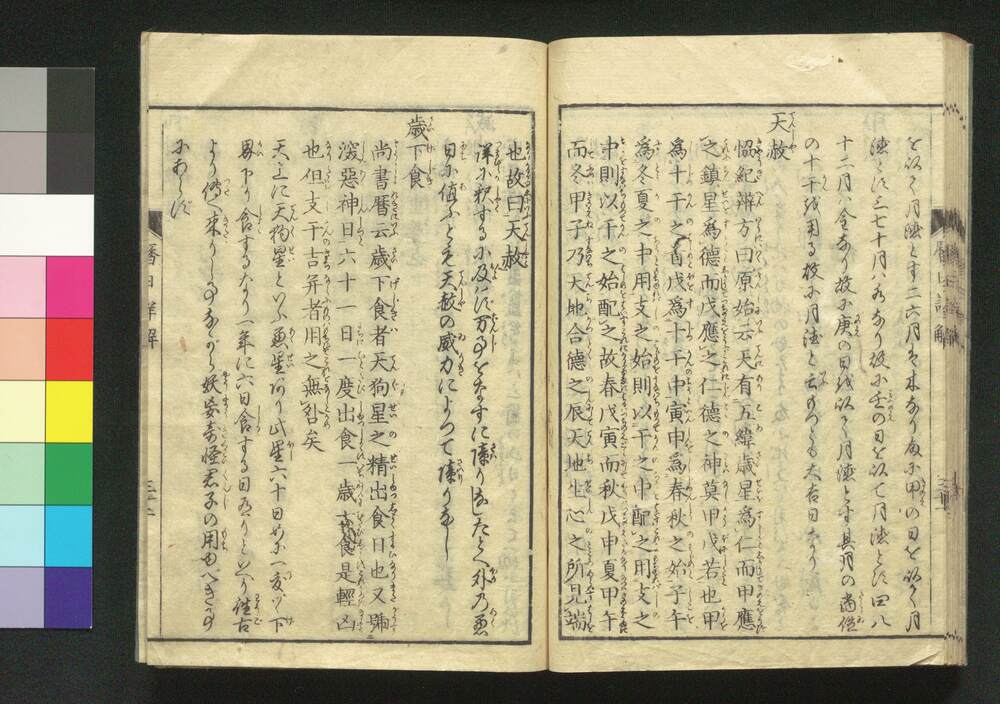 を以て月徳とす二六月は木なり故に甲の日を以て月
徳とす三七十月は水なり故に壬の日を以て月徳とす四八
十二月は金なり故に庚の日を以て月徳とす其月の当位
の十干を用る故に月徳と云めつとも大吉日なり
天赦
協紀辨方曰原始云天有五緯歳星為仁而甲應
之鎮星為德而戊應之仁德之神莫甲戊若也甲
為十干之首戊為十干中寅申為春秋之始子午
為冬夏之中用支之始則以干之中配之用支之
中則以干之始配之故春戊寅而秋戊申夏甲午
而冬甲子乃天地合德之辰天地生心之所見端
也故曰天赦
詳に釈するに及ばず万事をなすに障りなしたとへ外乃悪
日に値ふとも天赦の威力によつて障りなし
歳下食
尚書暦云歳下食者天狗星之精出食日也又號
濙惡神日六十一日一度出食一歳六食是輕凶
也但支干吉并者用之無咎矣
天上に天狗星といふ悪星あり此星六十日めに一度づゝ下
界に下り食するなり一年に六日食する日有りといへり往古
より傳へ来りし事ながら妖妄奇怪君子の用ゆべき事
にあらず
暦日詳解
暦日詳解